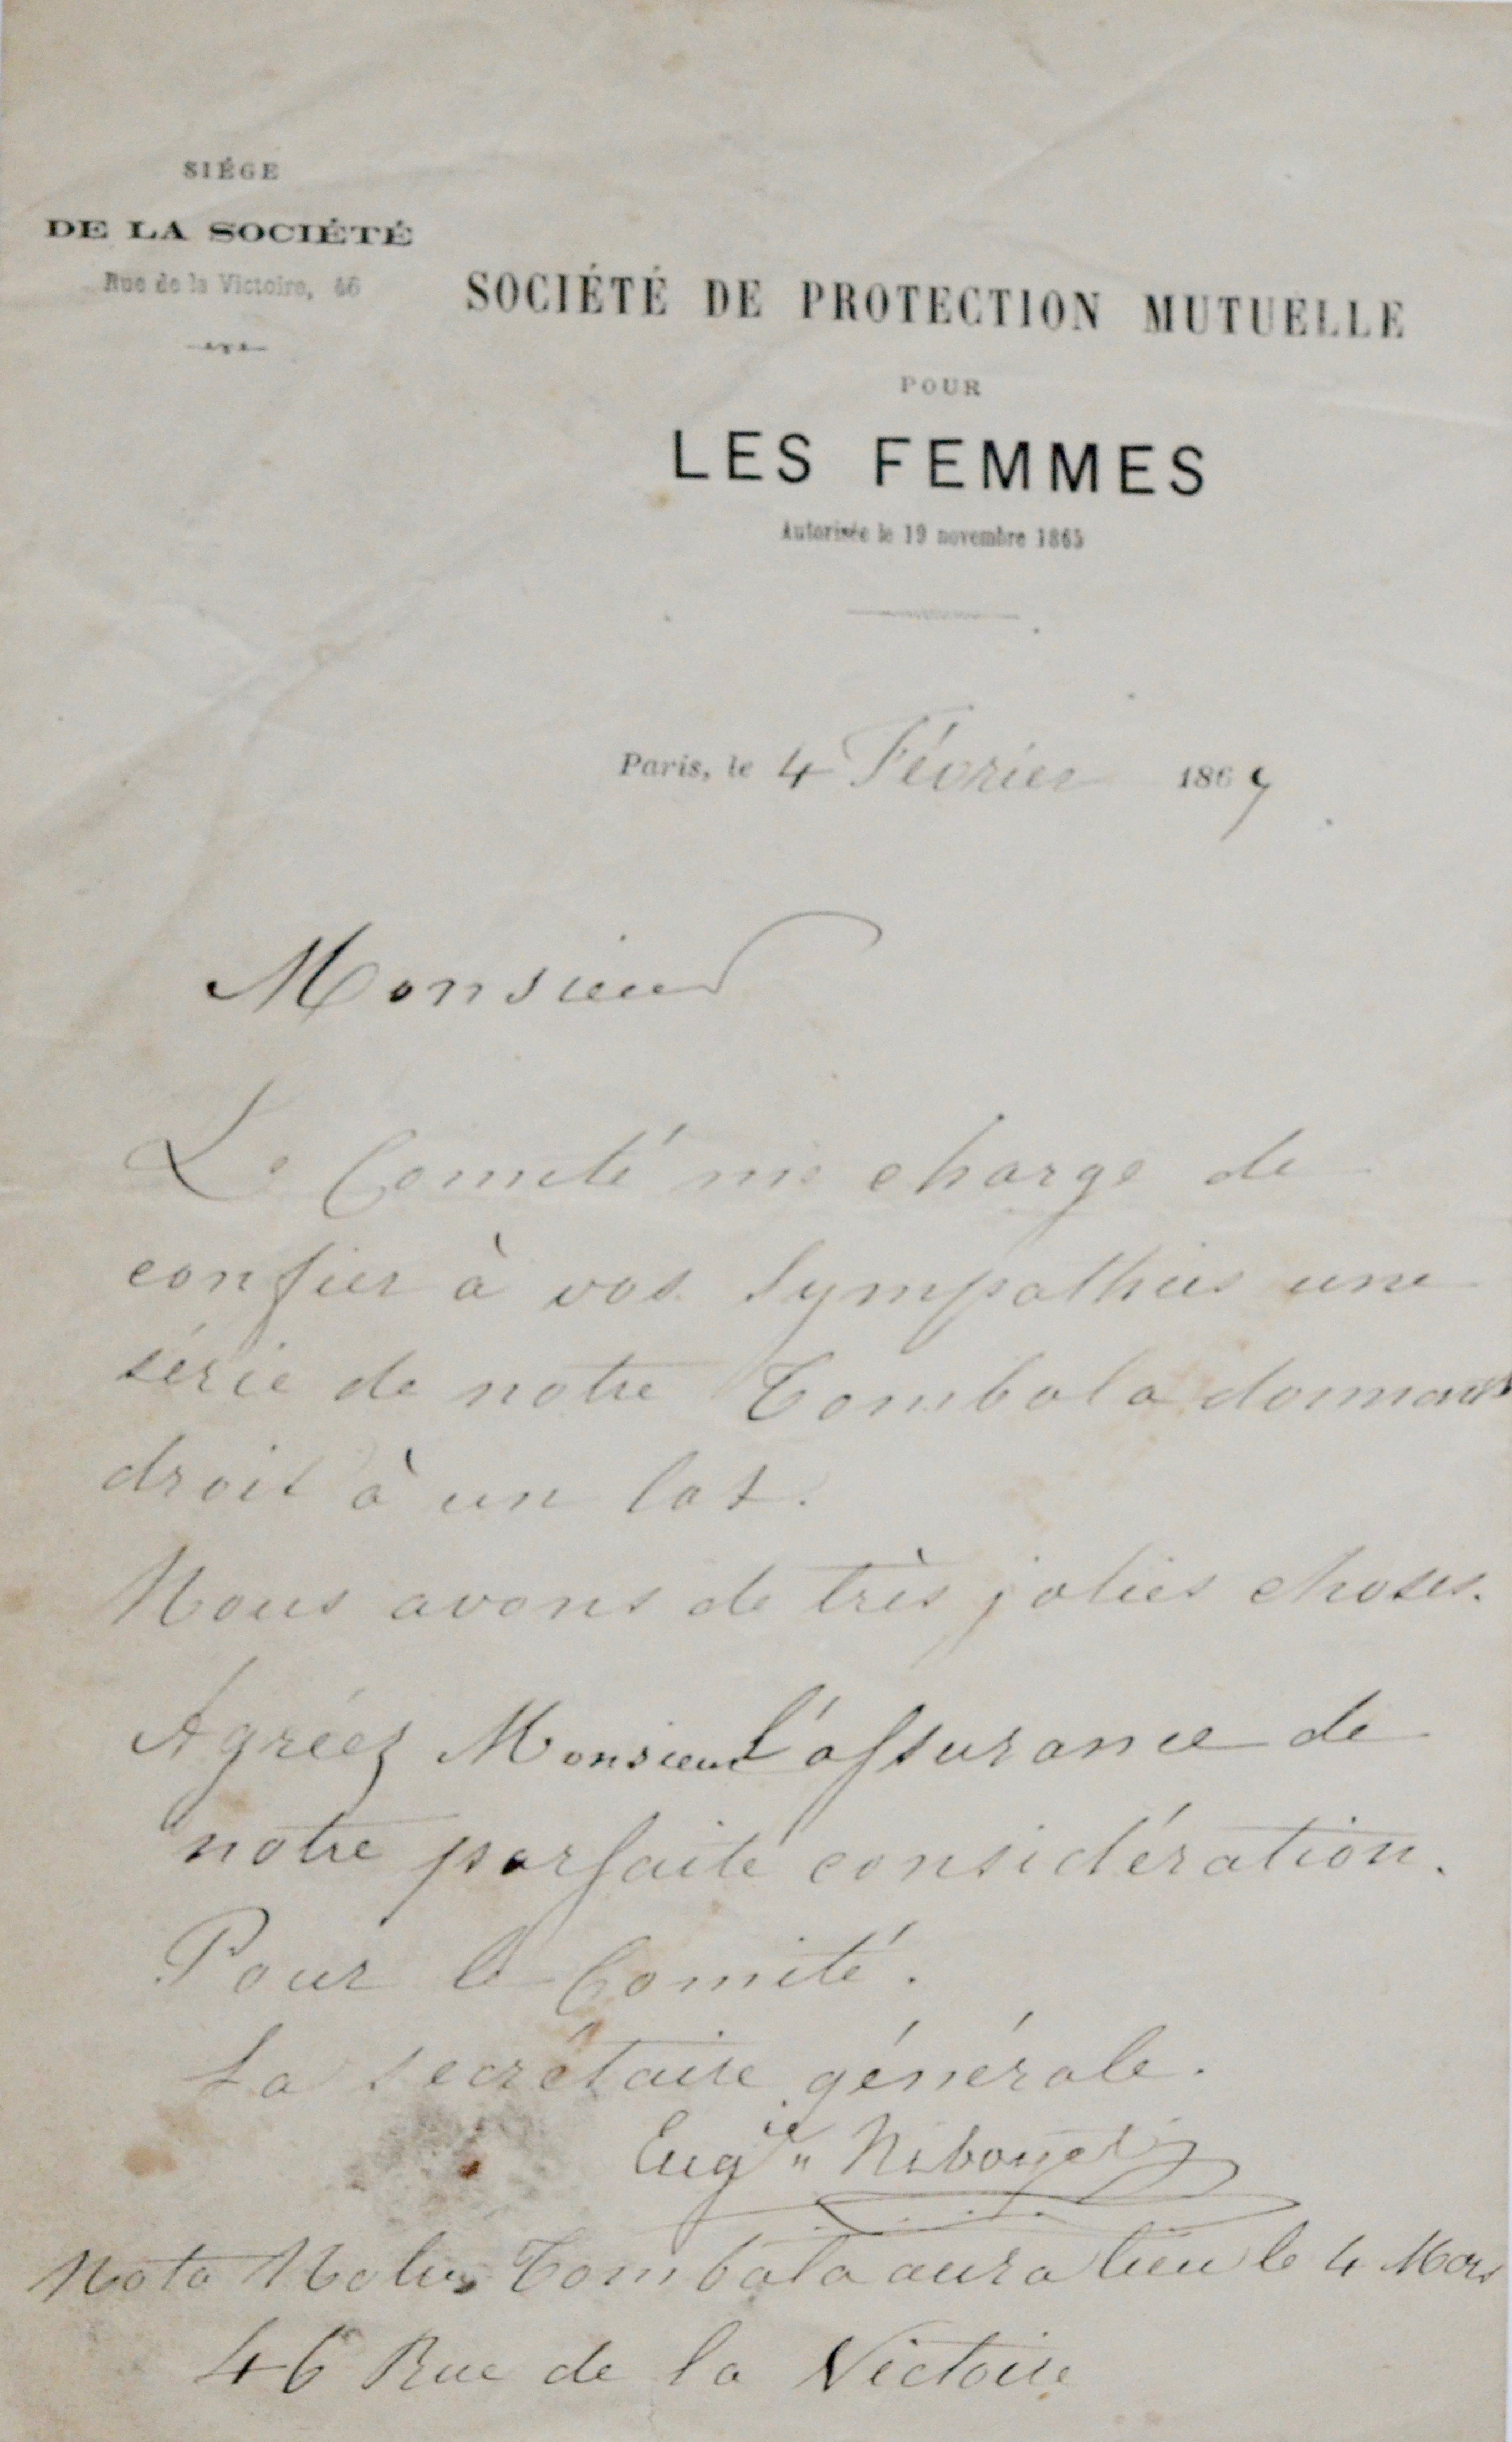 SIÉGE
DE LA SOCIÉTÉ
Rue de la Victoire, 46
SOCIÉTÉ DE PROTECTION MUTUELLE
POUR
LES FEMMES
Autorisée le 19 novembre 1865
Paris, le 4 Février 1867
Monsieur
Le Comité me charge de
confier à vos sympathies une
série de notre Tombola donnant
droit à un lot.
Nous avons de très jolies choses.
Agréez Monsieur l'assurance de
notre parfaite considération.
Pour le Comité.
La secrétaire générale.
Eugie Niboyet
Nota Notre Tombola aura lieu le 4 Mars
46 Rue de la Victoire